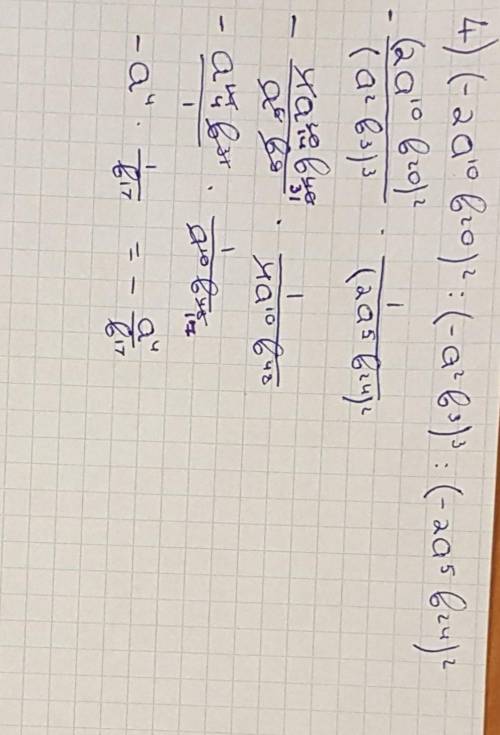 4) (-2a¹⁰ b²⁰)² : (-a² b³)³ : (-2a⁵ b²⁴)²
- (2a¹⁰ b²⁰)² / (a² b³)³ · 1 / (2a⁵ b²⁴)²
- 4a b / a⁶ b⁹ · 1 / 4a¹⁰ b⁴⁸
- a¹⁴ b³¹ / 1 · 1 / a¹⁰ b⁴⁸
- a⁴ · 1 / b¹⁷ = - a⁴ / b¹⁷